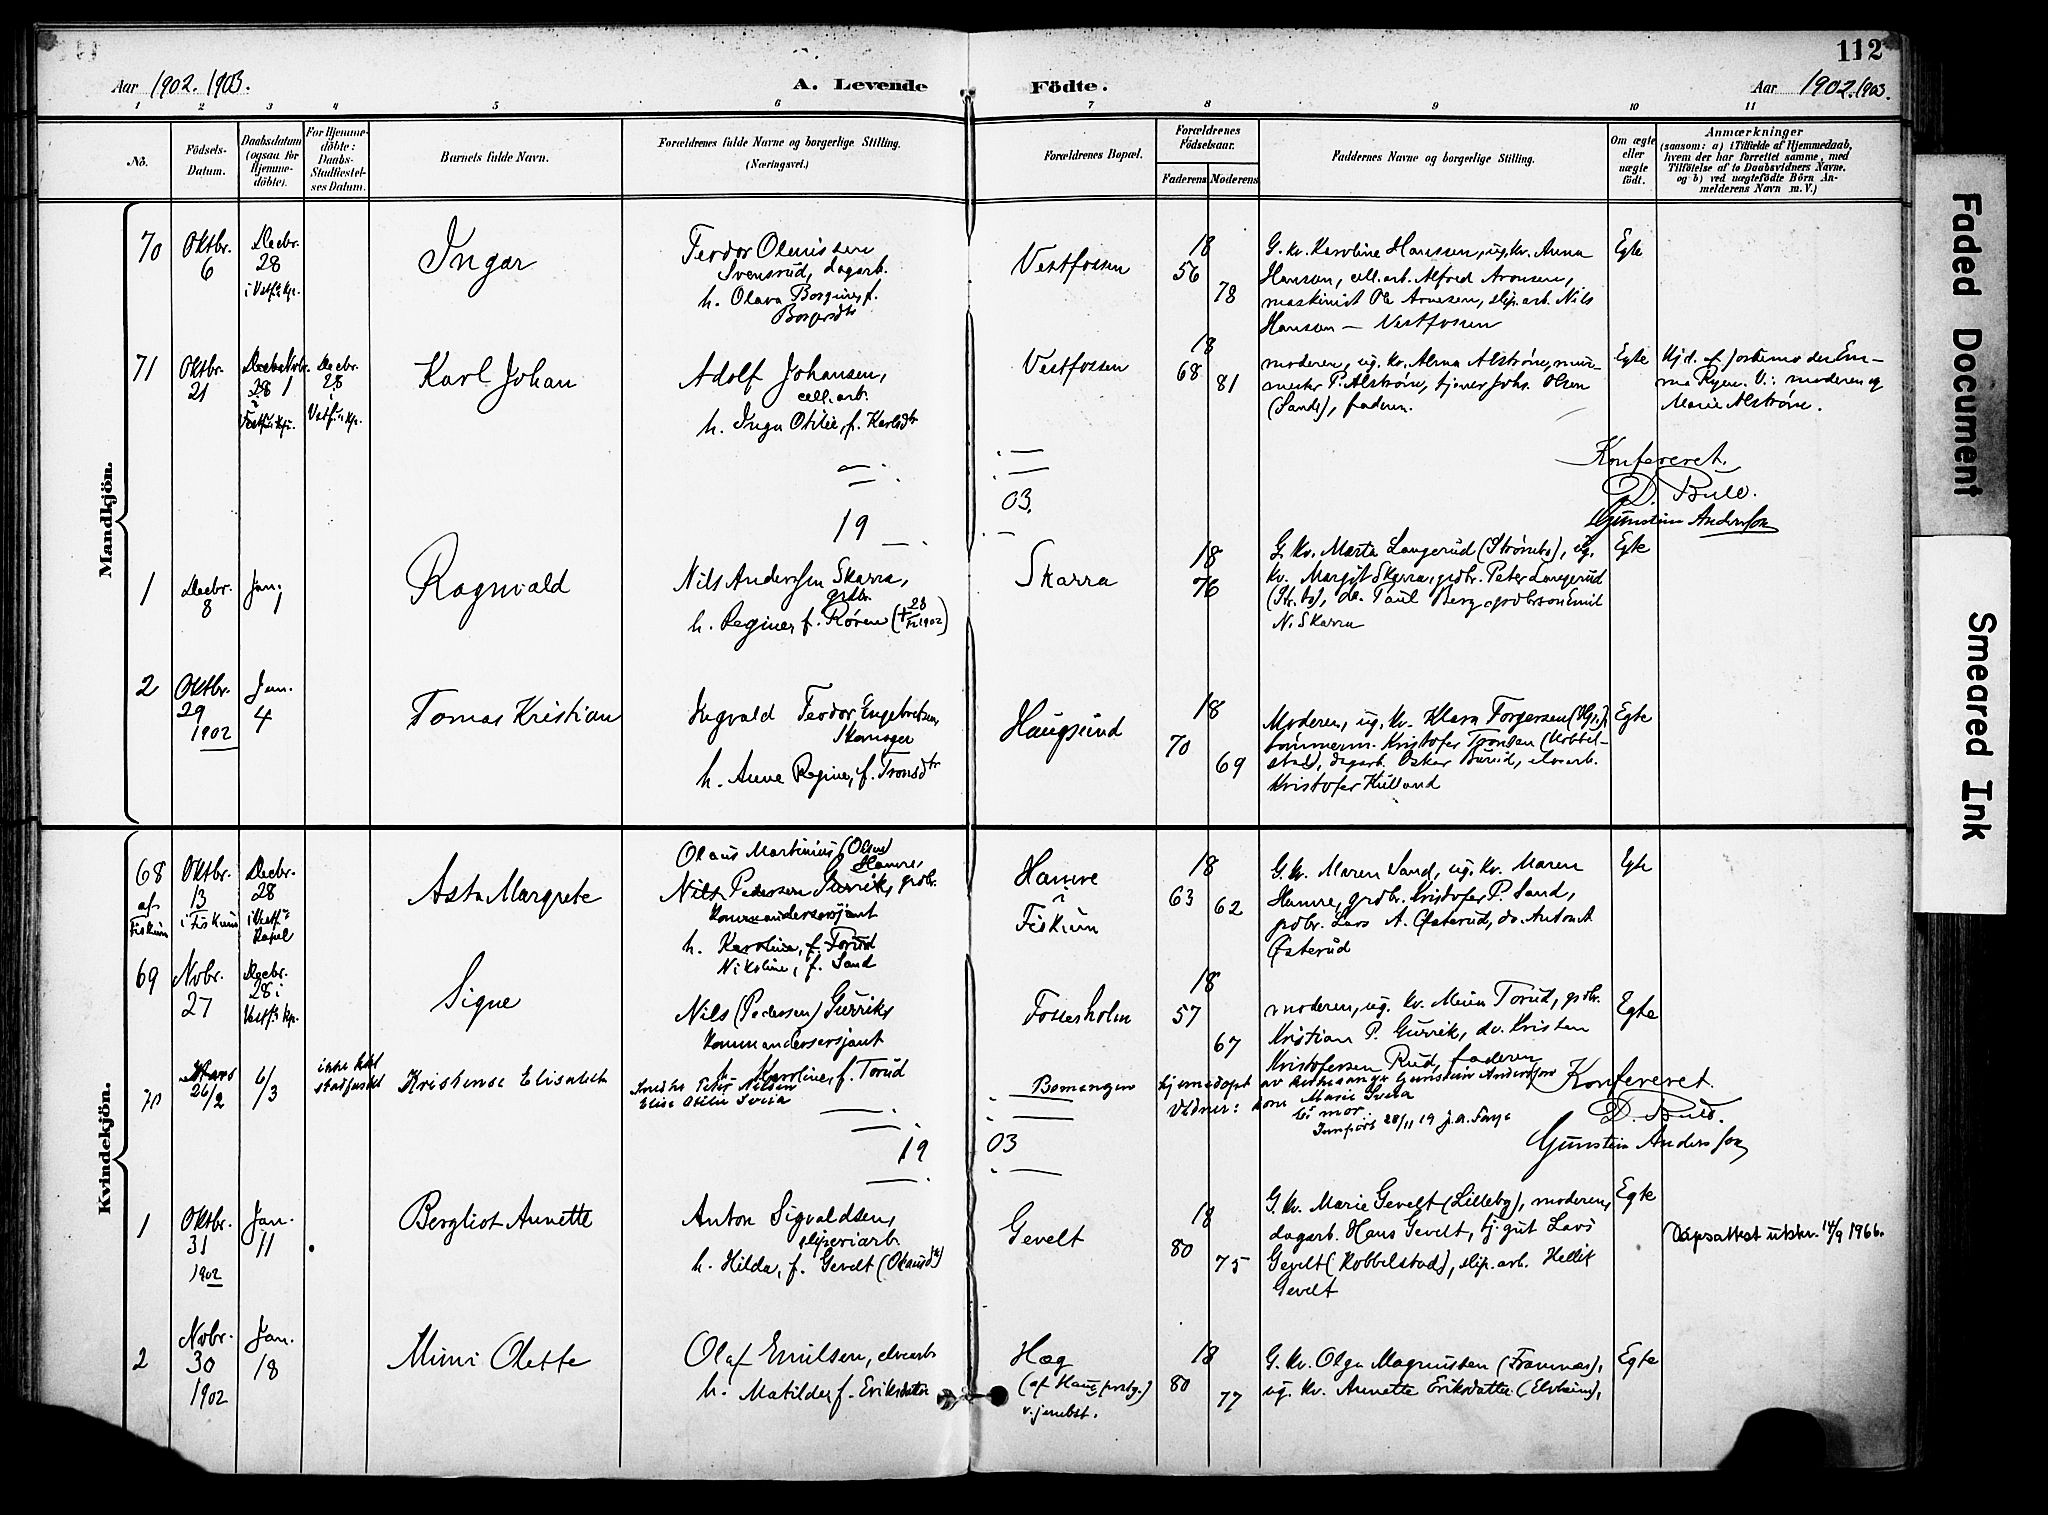 112
Aar 1902. 1903.
A. Levende Födte.
Aar 1902. 1903.
1 2 3 4 5 6 7 8 9 10 11
No.
Födsels-Datum.
Daabsdatum (ogsaa for Hjemme-döbte).
For Hjemme-döbte: Daabs-Stadfæstel-ses Datum.
Barnets fulde Navn.
Forældrenes fulde Navne og borgerlige Stilling. (Næringsvei.)
Forældrenes Bopæl.
Forældrenes Födselsaar.
Faderens Moderens
Faddernes Navne og borgerlige Stilling.
Om ægte eller uægte födt.
Anmærkninger
(saasom: a) i Tilfælde af Hjemmedaab,
hvem der har forrettet samme, med
Tilföielse af to Daabsvidners Navne.
og b) ved uægtefödte Börn An-
melderens Navn m. V.)
Mandkjön.
70
Oktbr. 6
Decbr. 28 i Vestf. kp.
Ingar
Teodor Olausen
Svensrud, dagarb.
h. Olava Borgine, f.
Borgersdtr
Vestfossen
18
56
78
G. kv. Karoline Hanssen, ug. kv. Anna
Hanson, cell. arb. Alfred Aronsen,
maskinist Ole Arnesen, slip. arb. Nils
Hanson — Vestfossen
Egte
71
Oktbr. 21
Novbr. 1
Decbr. 28 i Vestf. kp.
Karl Johan
Adolf Johansen,
cell. arb.
h. Inga Otilie, f. Karlsdtr
Vestfossen
18
68
81
moderen, ug. kv. Alma Alstrøm, mur-
mester P. Alstrøm, tjener Johs. Olsen
(Sande), faderen.
Egte
Hjd. af jordemoder Em-
ma Ryen. V.: moderen og
Marie Alstrøm.
Konfereret.
D. Bull.
Gunstein Anderssen
19 03.
1
Decbr. 8
Jan. 1
Ragnvald
Nils Anderssen Skarra,
grdbr.
h. Regine, f. Røren
Skarra
18
76
G. kv. Marta Langerud (Strømbo), ug.
kv. Margit Skarra, grdbr. Peter Langerud
(Str. bo), do. Paul Berg, grdbrson Emil
N. Skarra
Egte
2
Oktbr. 29 1902
Jan. 4
Tomas Kristian
Ingvald Teodor Engebretsen,
skomager
h. Anne Regine, f. Tronsdtr
Haugsund
18
70
69
Moderen, ug. kv. Klara Torgersen
tømmerm. Kristofer Tronsen (Kobbel-
stad), dagarb. Oskar Burud, elvearb.
Kristofer Kulland
Egte
Kvindekjön.
68 af Fiskum
Oktbr. 13 i Fiskum
Decbr. 28 i Vestf. Kapel
Asta Margrete
Olaus Martinius (Olsen)
Hamre,
Nils Pedersen Gurrik, grdbr.
kommandersersjant
h. Karoline, f. Torud
Nikoline, f. Sand
Hamre i Fiskum
18
63
62
G. kv. Maren Sand, ug. kv. Maren
Hamre, grdbr. Kristofer P. Sand,
grdbr. Lars A. Østerud, do. Anton A
Østerud
Egte
69
Novbr. 27
Decbr. 28 i Vestf. kp.
Signe
Nils (Pedersen) Gurrik,
kommandersersjant
h. Karoline, f. Torud
Fossesholm
18
57
67
moderen, ug. kv. Maren Torud, grdbr.
Kristian P. Gurrik, do. Kristen
Kristofersen Rud, faderen
Egte
70
26/2
6/3
ikke kkl stadfæstet
Kristense Elisabeth
Smed Peter Nilsen
Elise Otilie Sveia
Bamangen
hjemmedøpt av kirkesanger Gunstein Anderssen
Vidner: kone Marie Sveia
mor.
Innført 28/11 19
Konfereret.
D. Bull.
Gunstein Anderssen
19 03
1
Oktbr. 31 1902
Jan. 11
Bergliot Annette
Anton Sigvaldsen,
sliperiarb.
h. Hilda, f. Gevelt (Olausdtr)
Gevelt
18
80
75
G. kv. Marie Gevelt (Lilleby), moderen,
dagarb. Hans Gevelt, tj. gut Lars
Gevelt (Kobbelstad), slip. arb. Hellik
Gevelt
Egte
Dåpsattest utskr. 14/9 1966.
2
Novbr. 30 1902
Jan. 18
Mimi Olette
Olaf Emilsen, elvearb
h. Matilde, f. Eriksdatter
Hæg
(af Haug prstg.)
v. jernbst.
18
80
77
G. kv. Olga Magnussen (Framnæs),
ug. kv. Annette Eriksdatter (Elvheim),
Egte
Faded Document
Smeared Ink